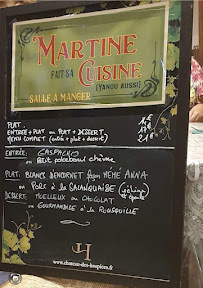 MARTINE
FAIT SA
CUISINE
(YANOU AUSSI)
SALLE A MANGER
PLAT :
ENTRÉE + PLAT ou PLAT + DESSERT
MENU COMPLET (entrée + plat + dessert)
ENTRÉE: GASPACHO
ou Petit chèvre
PLAT: BLANCS façon MÉMÉ ANNA
ou PORC à la
DESSERT: MOELLEUX au CHOCOLAT
ou GOURMANDISE à la ROUSQUILLE
H
www.chateau-des-hospices.fr